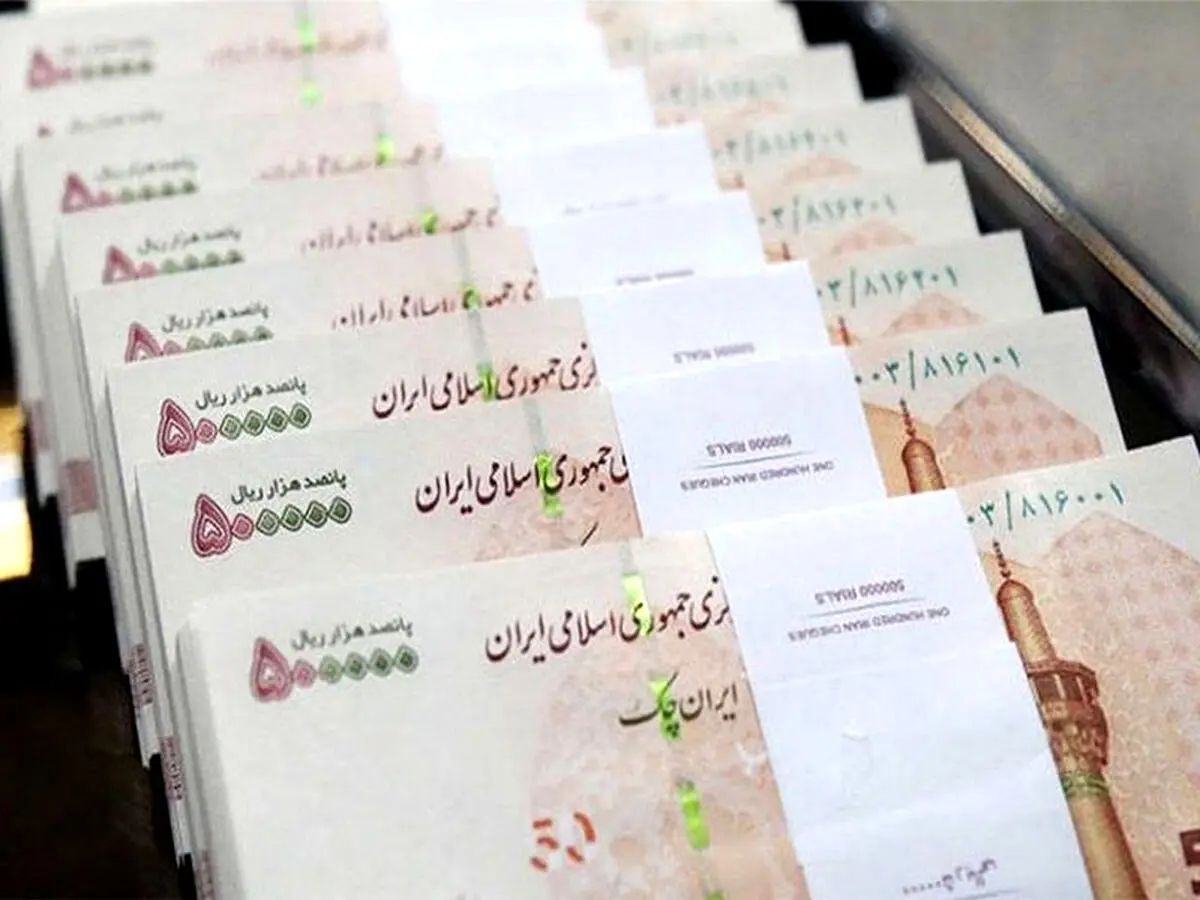 پانصد هزار ریال
۵۰۰۰۰۰
پانصد هزار ریال
پانصد هزار ریال
۵۰۰۰۰۰
پانصد هزار ریال
۵۰۰۰۰۰
جمهوری اسلامی ایران
پانصد هزار ریال
۵۰۰۰۰۰
جمهوری اسلامی ایران
۳/۸۱۶۲۰۱
500000 RIALS
پانصد هزار ریال
۵۰۰۰۰۰
کزی جمهوری اسلامی ایران
۰۰۳/۸۱۶۱۰۱
500000 RIALS
ONE HUNDRED IRAN CHEQUES
پانصد هزار ریال
۵۰۰۰۰۰
ی جمهوری اسلامی ایران
۰۳/۸۱۶۰۰۱
500000 RIALS
ONE HUNDRED IRAN CHEQUES
پانصد هزار ریال
۵۰۰۰۰۰
کزی جمهوری اسلامی ایران
ایران چک